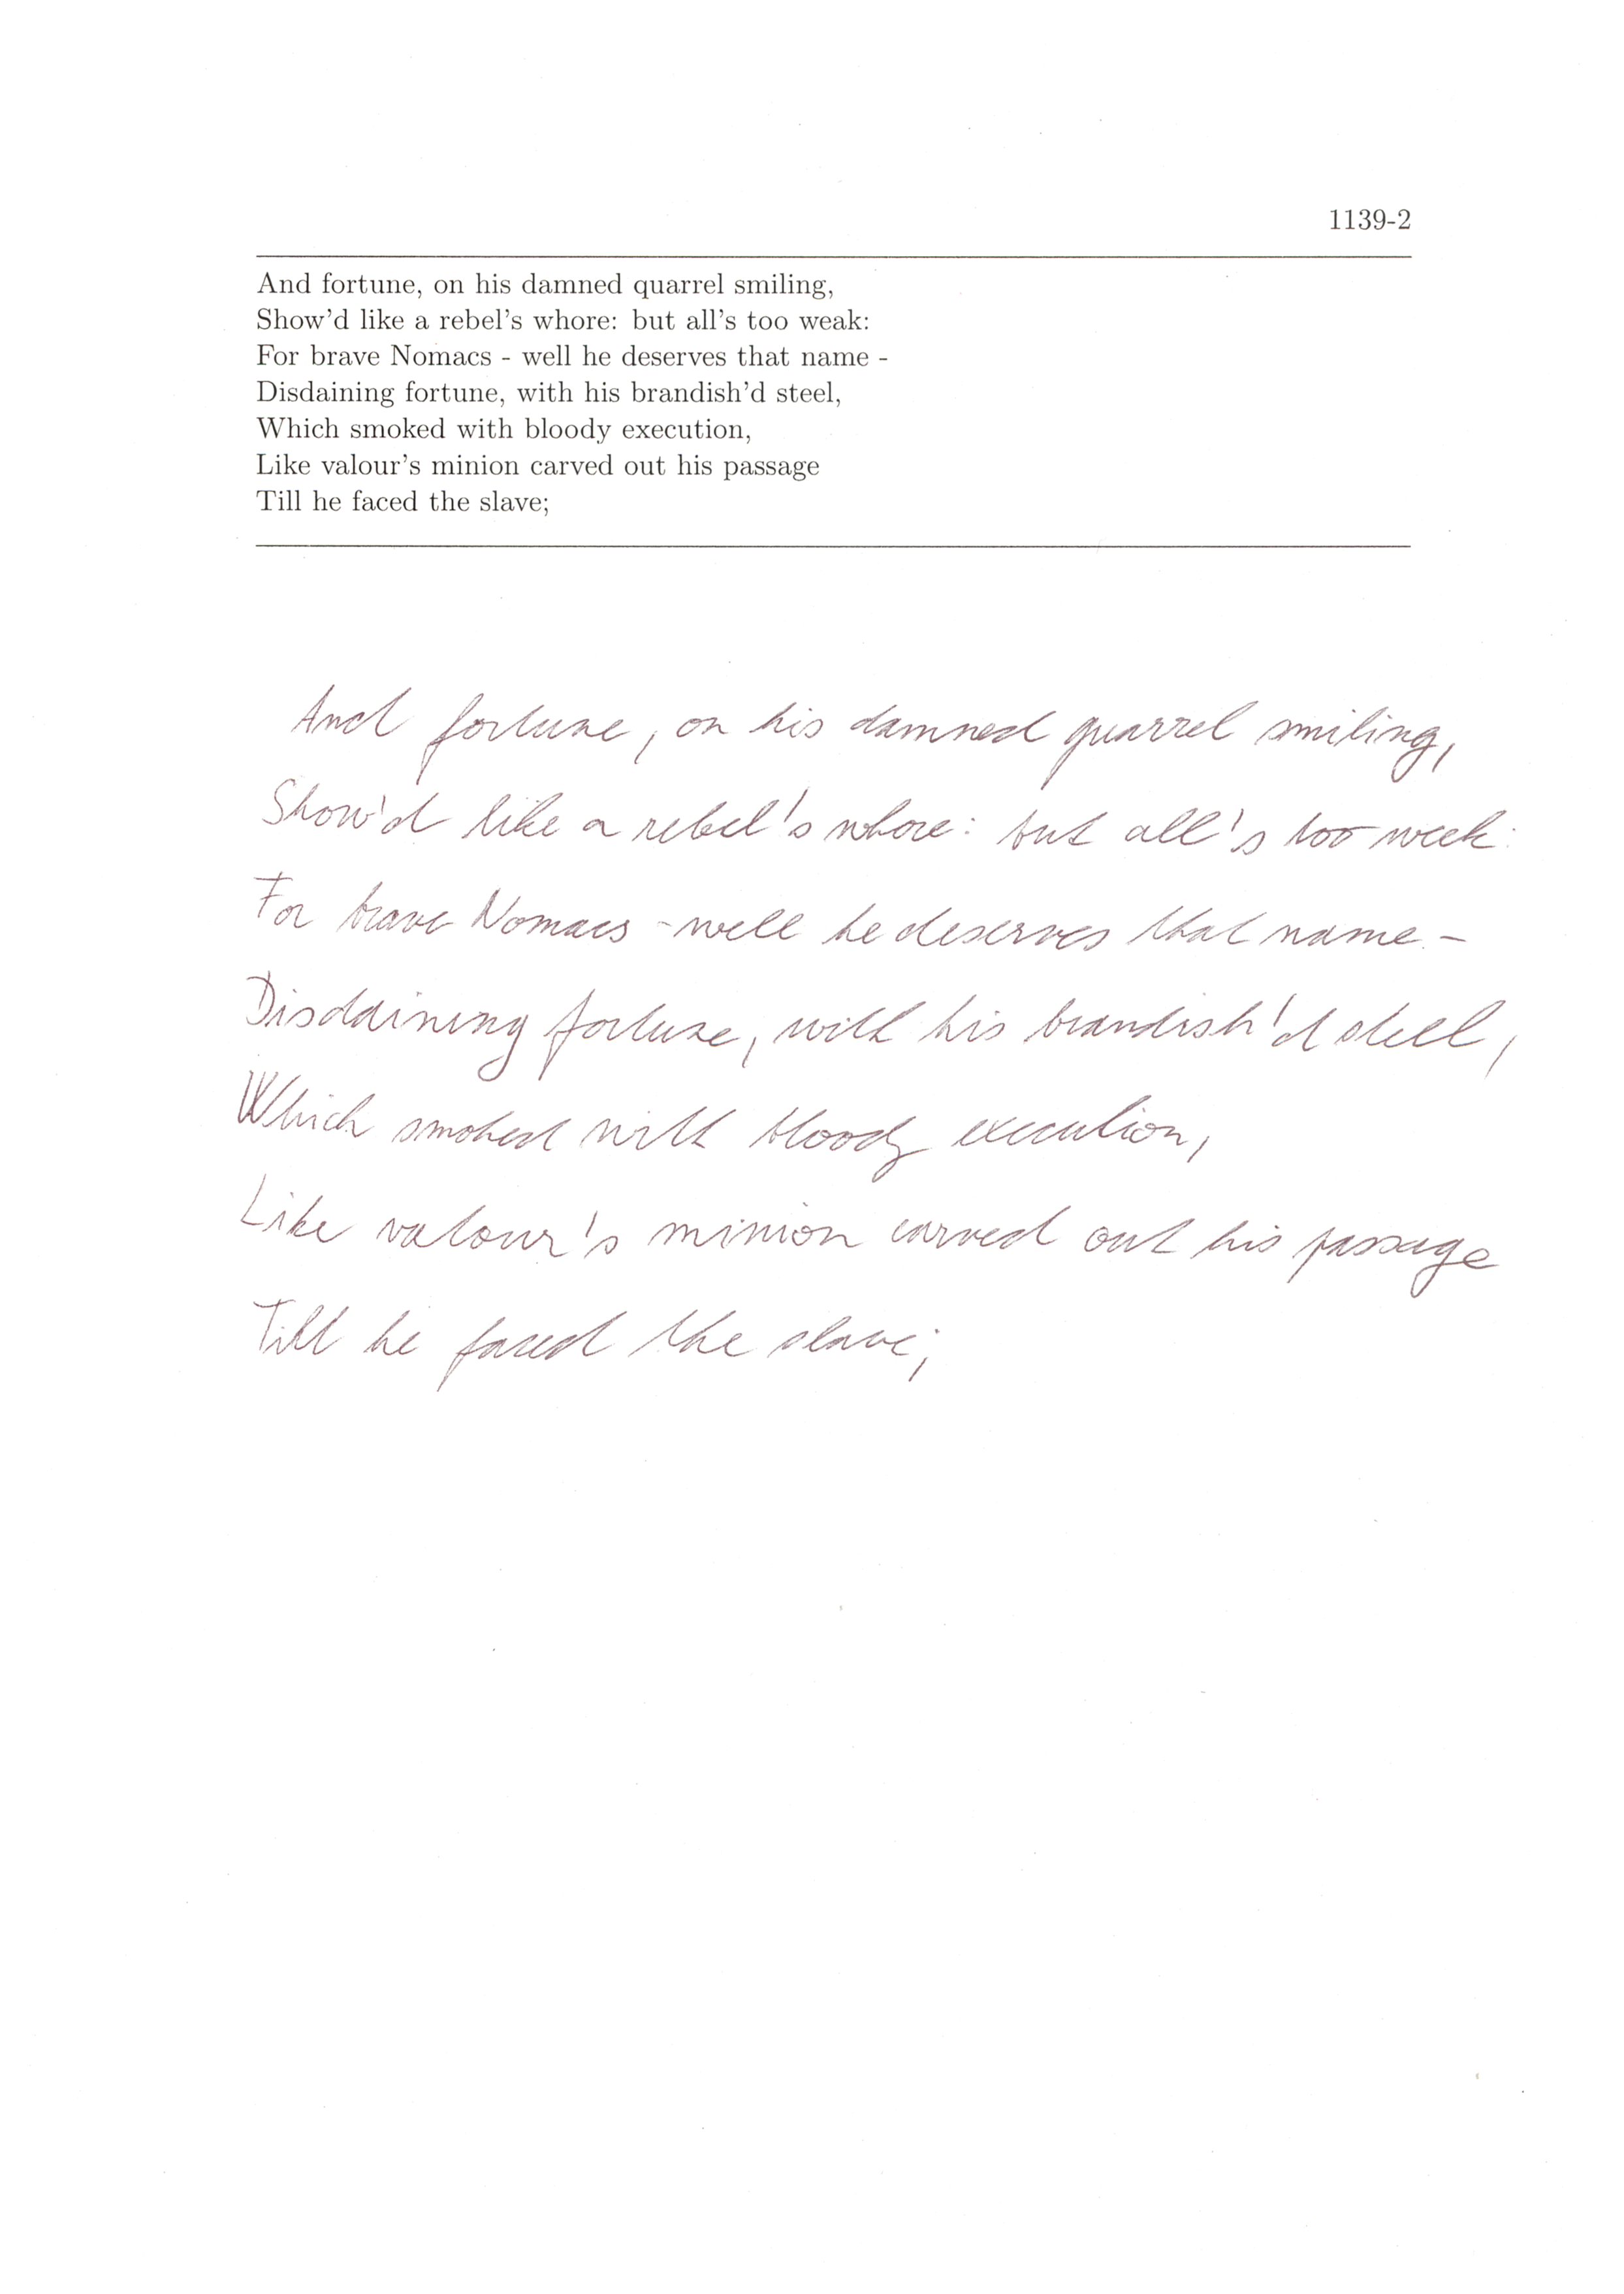 1139-2
And fortune, on his damned quarrel smiling,
Show'd like a rebel's whore: but all's too weak:
For brave Nomacs - well he deserves that name -
Disdaining fortune, with his brandish'd steel,
Which smoked with bloody execution,
Like valour's minion carved out his passage
Till he faced the slave;
And fortune, on his damned quarrel smiling,
Show'd like a rebel's whore: but all's too week:
For brave Nomacs - well he deserves that name -
Disdaining fortune, with his brandish'd steel,
Which smoked with bloody execution,
Like valour's minion carved out his passage
Till he faced the slave;